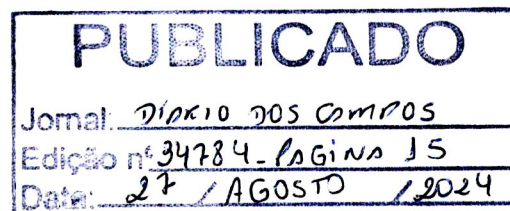 PUBLICADO
Jornal: DIÁRIO DOS CAMPOS
Edição nº 34784 - PAGINA 15
Data: 27 / AGOSTO / 2024